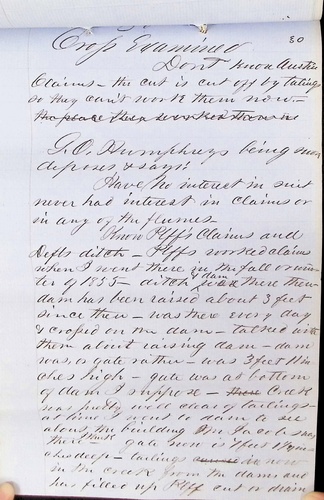 80
Cross Examined
Don't know Austin
Claims - the cut is cut off by tailings
so they can't work them now -
G. O. Humphreys being sworn
deposes & says:
Have no interest in suit
never had interest in claims or
in any of the flumes -
Know Plffs Claims and
Defts ditch - Plffs worked claims
when I went there in the fall or win-
ter of 1855 - ditch & dam there then
dam has been raised about 3 feet
since then - was there every day
& crossed on the dam - talked with
them about raising dam - dam
was, or gate rather - was 3 feet
ches high - gate was at bottom
of dam I suppose - Creek
was pretty well clear of tailings -
at time I went to dam to see
about the building
there - gate now is 4 feet
ches deep - tailings now
in the creek from the dam and
has filled up Plff cut or drain